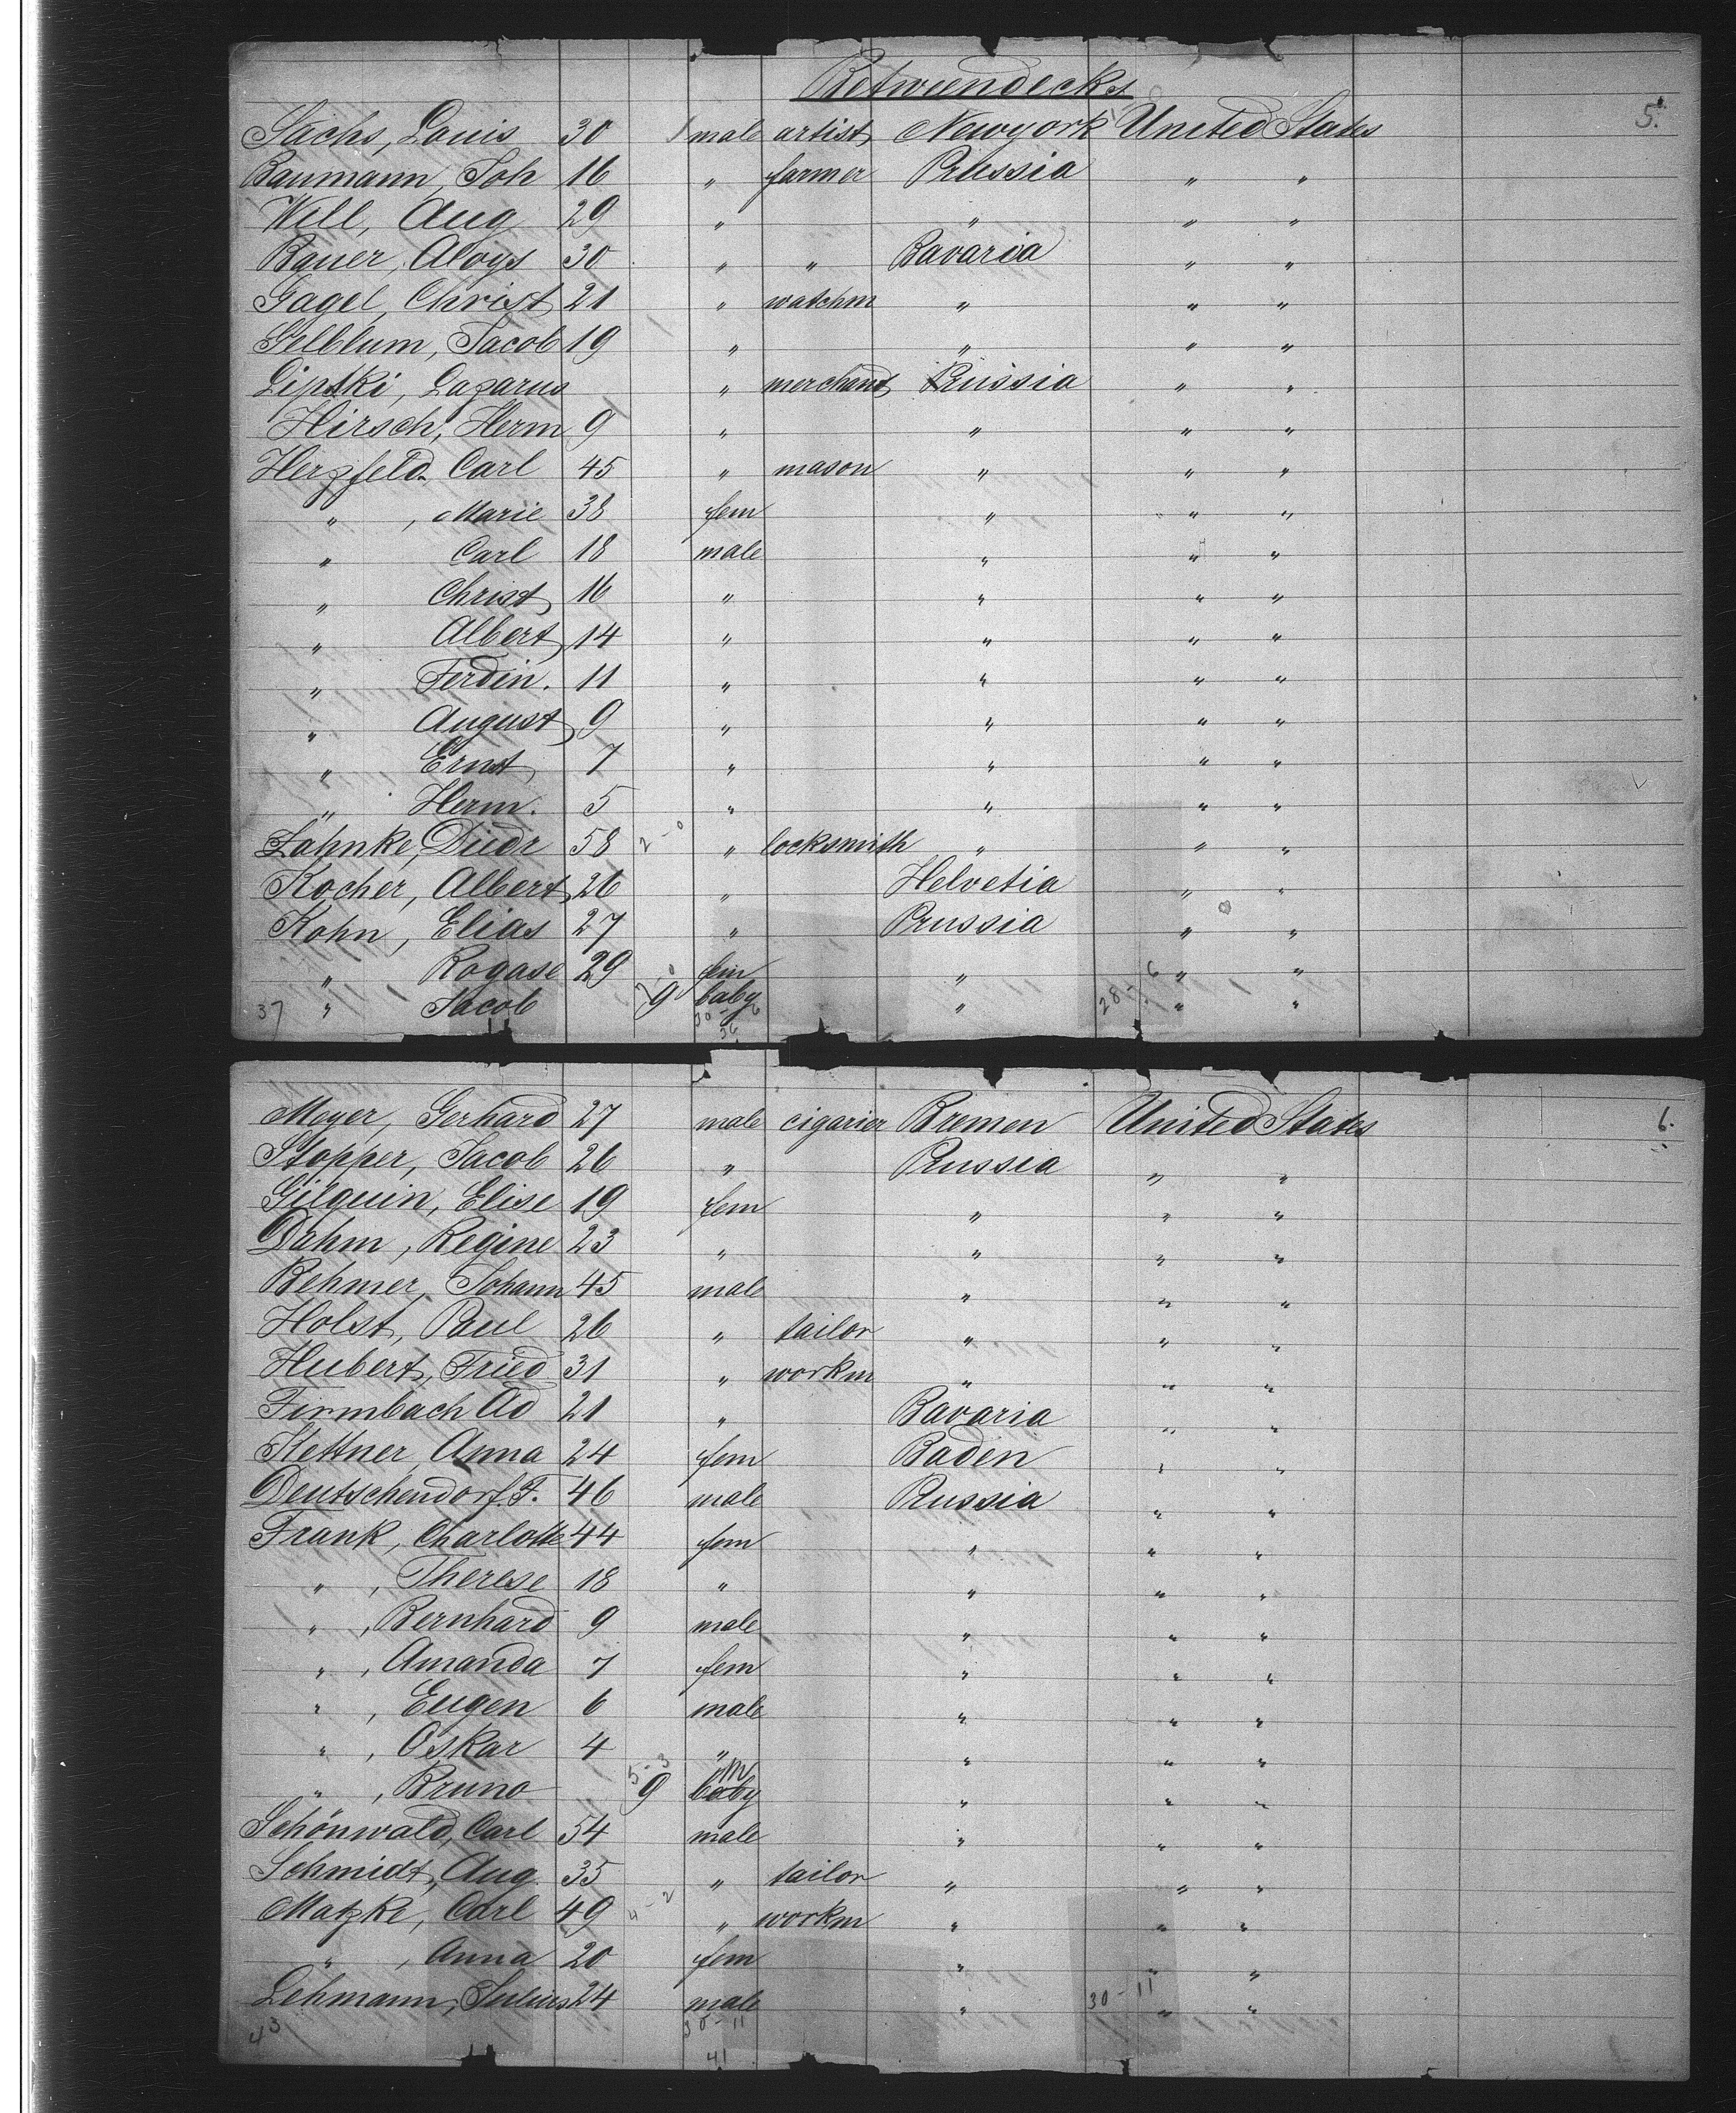 Betweendecks
5.
Sachs, Louis 30 male artist Newyork United States
Baumann, Joh 16 " farmer Prussia " "
Will, Aug 29 " " " "
Bauer, Aloys 30 " " Bavaria " "
Gagel, Christ 21 " watchm " " "
Gelblum, Jacob 19 " " " "
Lipski, Lazarus " merchant Russia " "
Hirsch, Herm 9 " " " "
Herzfeld, Carl 45 " mason " " "
" , Marie 38 fem " " "
" Carl 18 male " " "
" Christ 16 " " " "
" Albert 14 " " " "
" Ferdin. 11 " " " "
" August 9 " " " "
" Ernst 7 " " " "
" Herm. 5 " " " "
Diedr 58 2-0 " locksmith " " "
Kocher, Albert 26 " Helvetia " "
Kohn, Elias 27 " Prussia " "
" 29 fem " " "
37 " Jacob 9 baby " 28-6 " "
30-6
36
6.
Meyer, Gerhard 27 male cigarier Bremen United States
Stopper, Jacob 26 " Prussia " "
Gilquin, Elise 19 fem " " "
Dahm, Regine 23 " " " "
Behmer, Johann 45 male " " "
Holst, Paul 26 " tailor " " "
Hubert, Fried 31 " workm " " "
Firmbach Ad 21 " Bavaria " "
Stettner, Anna 24 fem Baden " "
Deutschendorf. F. 46 male Prussia " "
Frank, Charlotte 44 fem " " "
" , Therese 18 " " " "
" , Bernhard 9 male " " "
" , Amanda 7 fem " " "
" , Eugen 6 male " " "
" , Oskar 4 " " " "
" , Bruno 5-3 9 m baby " " "
Schönwald, Carl 54 male " " "
Schmidt, Aug. 35 " tailor " " "
Matzke, Carl 49 4-2 " workm " " "
" , Anna 20 fem " " "
Lehmann, Julius 24 male " 30-11 " "
43 30-11
41